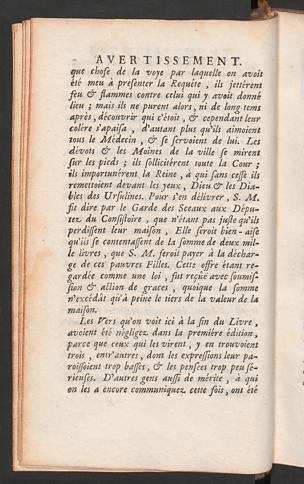 AVERTISSEMENT.
que chose de la voye par laquelle on avoit
été meu à presenter la Requête, ils jettérent
feu & flammes contre celui qui y avoit donné
lieu ; mais ils ne purent alors, ni de long-tems
après, découvrir qui c'étoit, & cependant leur
colére s'apaisa, d'autant plus qu'ils aimoient
tous le Médecin, & se servoient de lui. Les
dévots & les Moines de la ville se mirent
sur les pieds ; ils sollicitérent toute la Cour ;
ils importunérent la Reine, à qui sans cesse ils
remettoient devant les yeux, Dieu & les Dia-
bles des Ursulines. Pour s'en délivrer, S. M.
fit dire par le Garde des Sceaux aux Dépu-
tez du Consistoire, que n'étant pas juste qu'ils
perdissent leur maison, Elle seroit bien-aise
qu'ils se contentassent de la somme de deux mil-
le livres, que S. M. feroit payer à la déchar-
ge de ces pauvres Filles. Cette offre étant re-
gardée comme une loi, fut reçüe avec soumis-
sion & action de graces, quoique la somme
n'excédât qu'à peine le tiers de la valeur de la
maison.
Les Vers qu'on voit ici à la fin du Livre,
avoient été négligez dans la première édition,
parce que ceux qui les virent, y en trouvoient
trois, entr'autres, dont les expressions leur pa-
roissoient trop basses, & les pensées trop peu sé-
rieuses. D'autres gens aussi de mérite, à qui
on les a encore communiquez cette fois, ont été